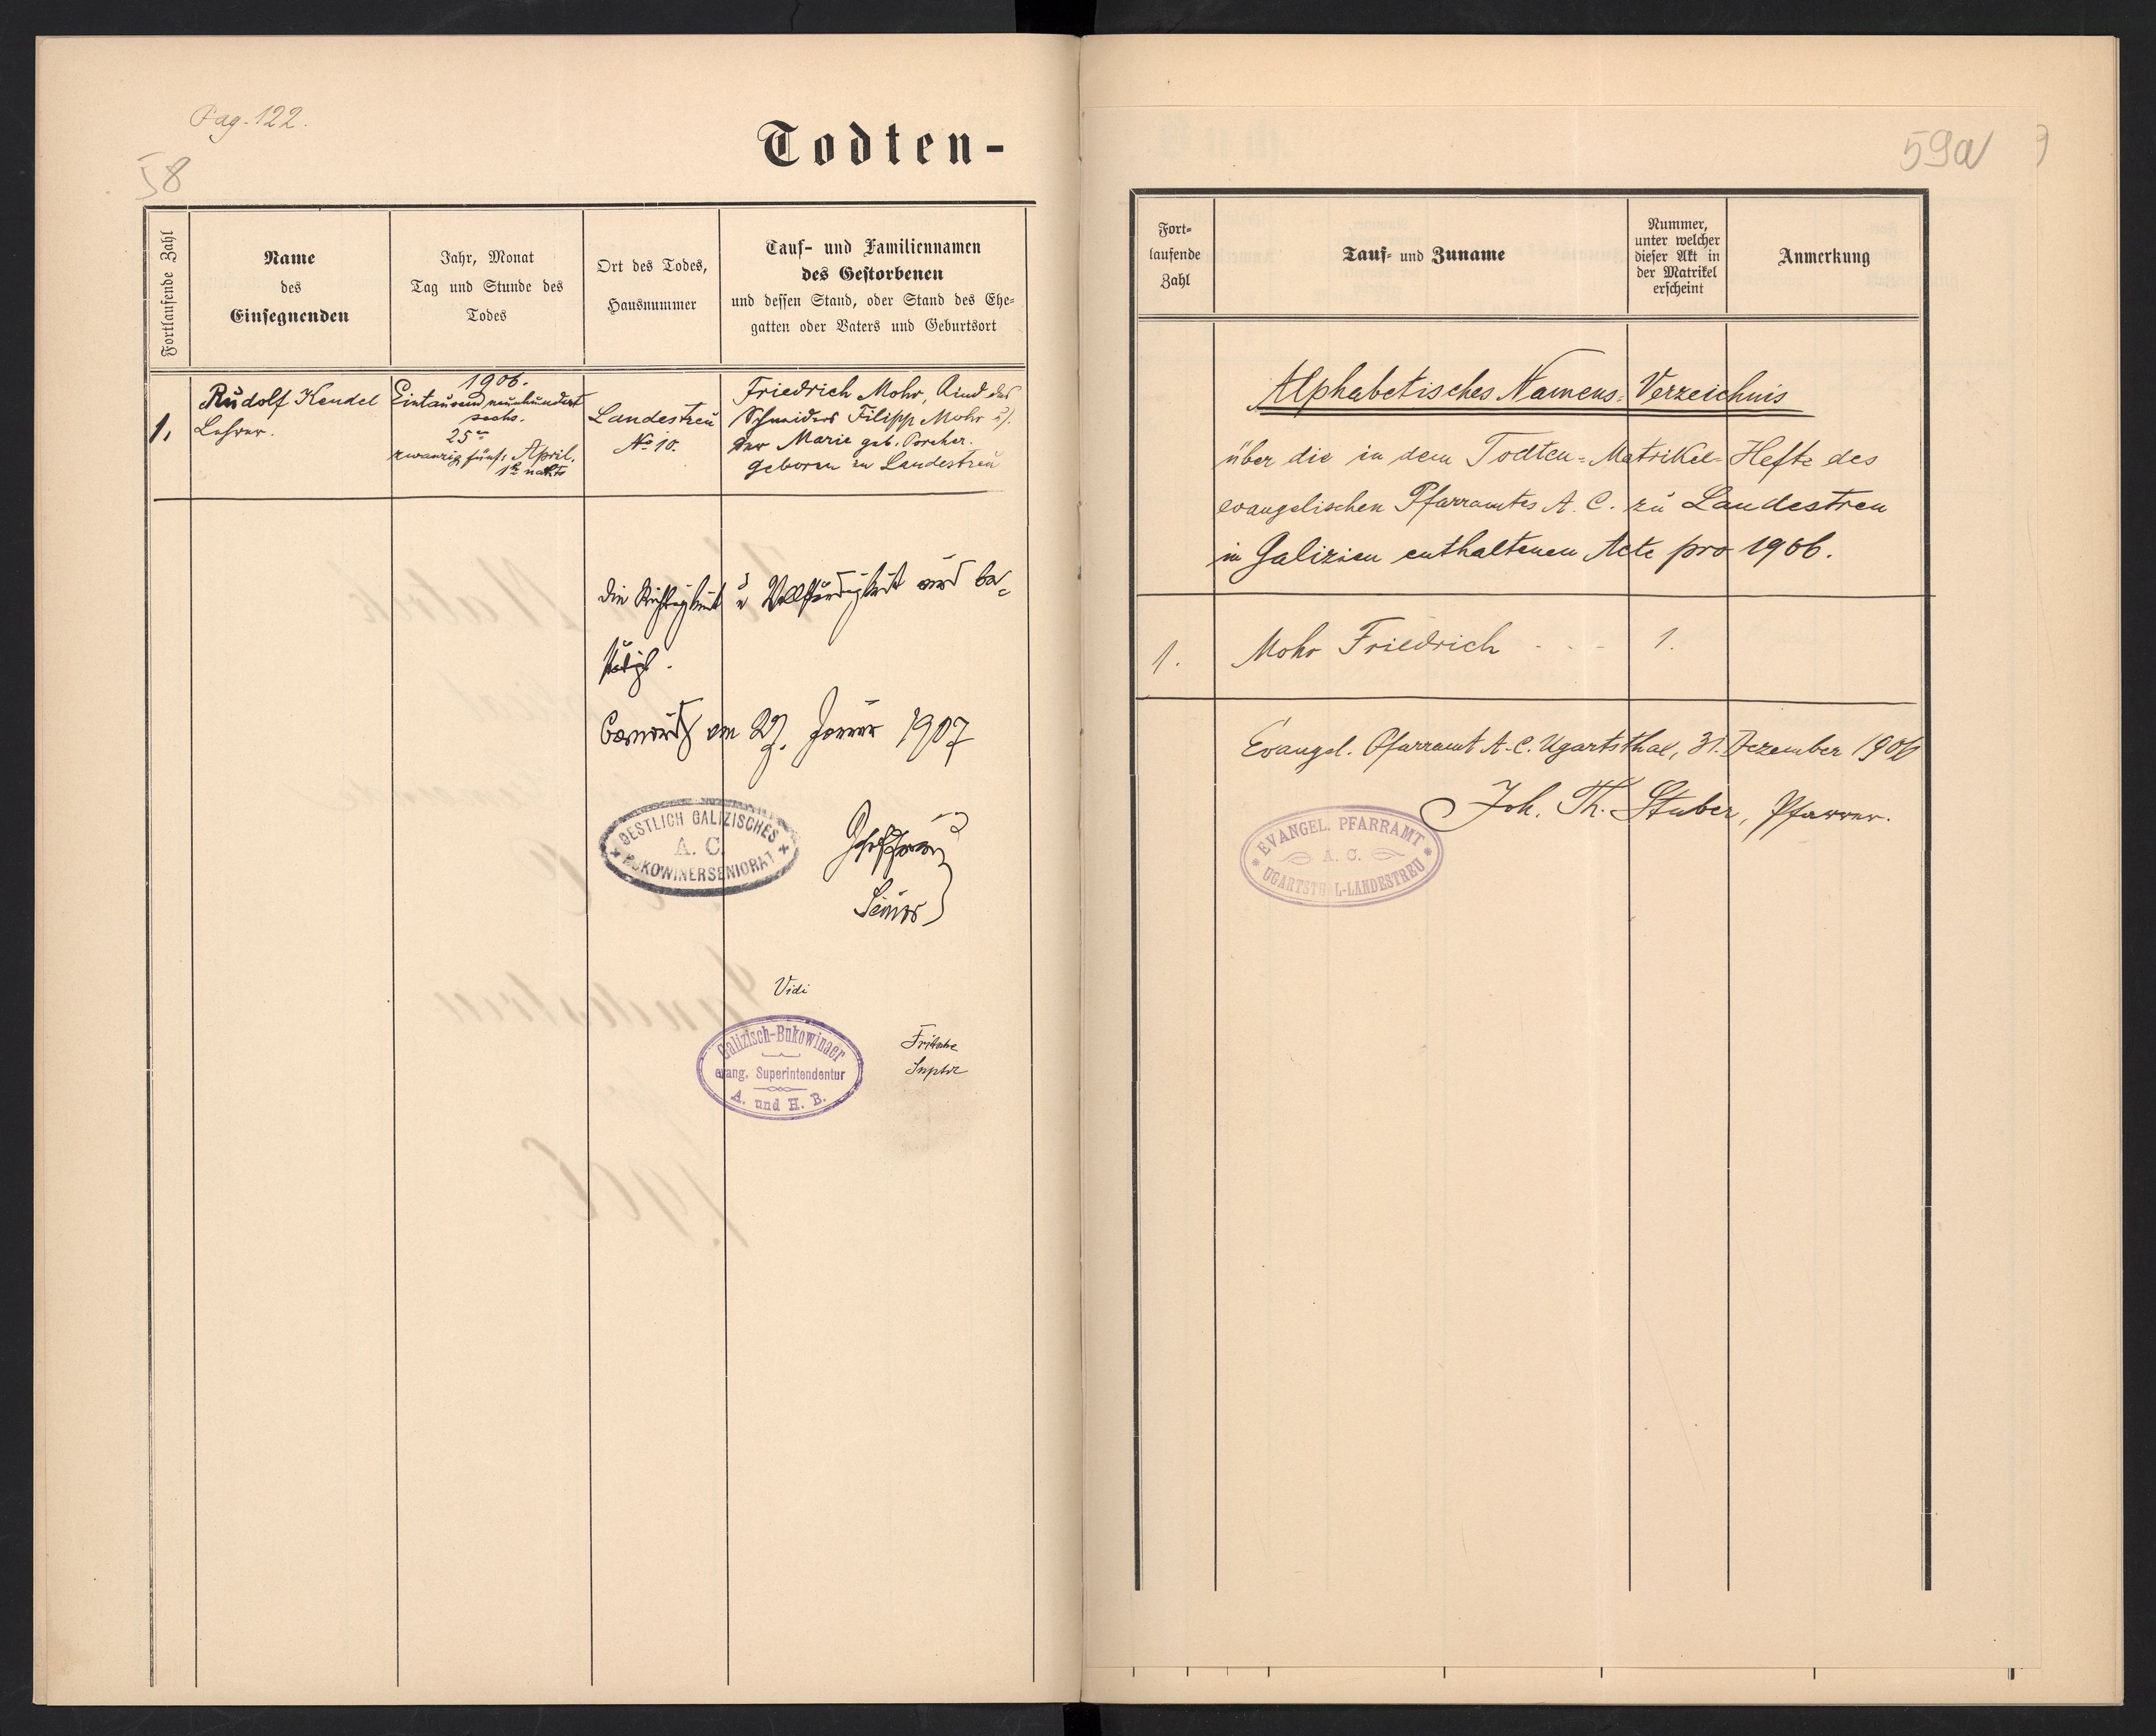 Pag. 122.
58
Todten-
Fortlaufende Zahl
Name
des
Einsegnenden
Jahr, Monat
Tag und Stunde des
Todes
Ort des Todes,
Hausnummer
Tauf- und Familiennamen
des Gestorbenen
und dessen Stand, oder Stand des Ehe-
gatten oder Vaters und Geburtsort
1.
Rudolf Kendel
Lehrer.
1906.
Eintausend neunhundert
sechs.
25
zwanzig fünf: April.
1h nachts
Landestreu
No 10.
Friedrich Mohr, Kind des
Schneiders Filipp Mohr u.
der Marie geb. Porcher.
geboren zu Landestreu
Die Richtigkeit u Vollständigkeit wird be-
stätigt.
am 27. Januar 1907
OESTLICH GALIZISCHES
A. C.
BUKOWINERSENIORAT
Senior
Vidi
Galizisch-Bukowinaer
evang. Superintendentur
A. und H. B.
Fritsche
Suptdt
59a
9
Fort-
laufende
Zahl
Tauf- und Zuname
Nummer,
unter welcher
dieser Akt in
der Matrikel
erscheint
Anmerkung
Alphabetisches Namens-Verzeichnis
über die in dem Todten-Matrikel-Hefte des
evangelischen Pfarramtes A. C. zu Landestreu
in Galizien enthaltenen Acte pro 1906.
1. Mohr Friedrich - - - 1.
Evangel. Pfarramt A. C. Ugartsthal, 31. Dezember 1906
Joh. Th. Stuber, Pfarrer.
EVANGEL. PFARRAMT
A. C.
UGARTSTHAL-LANDESTREU